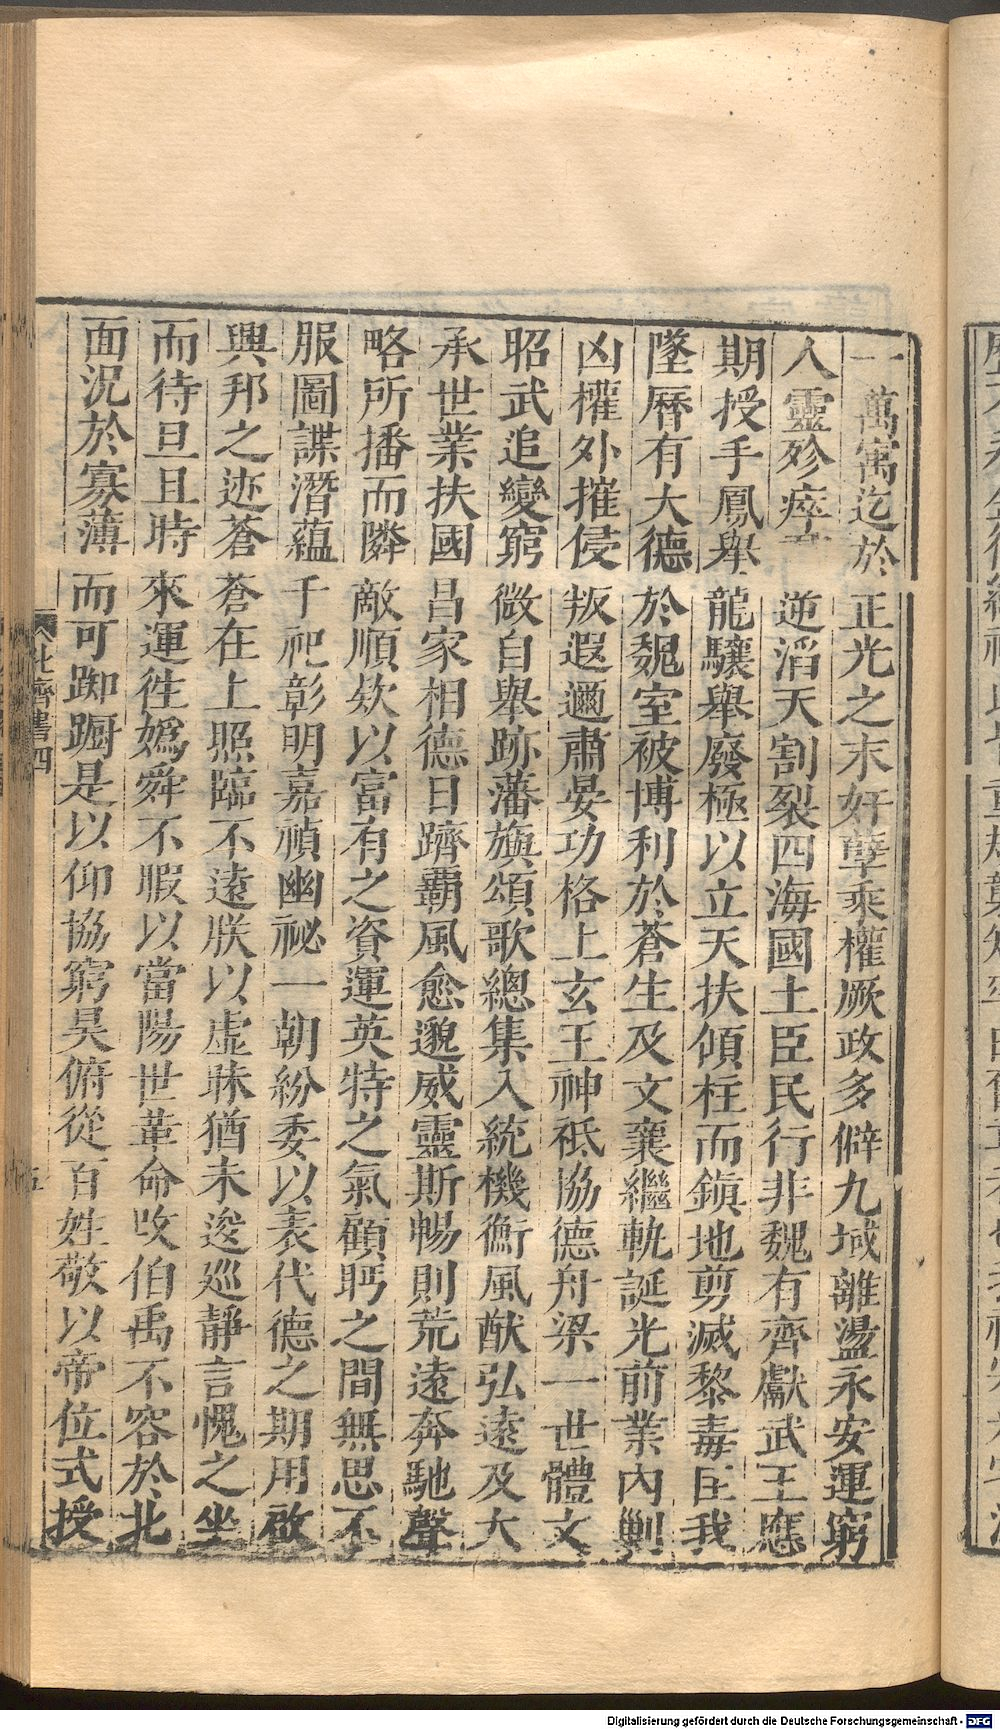 一萬寓迄於正光之末奸孽乘權厥政多僻九域離盪永安運窮
人靈殄瘁逆滔天割裂四海國土臣民行非魏有齊獻武王應
期授手鳳舉龍驤舉廢極以立天扶傾柱而鎮地剪滅黎毒匡我
墜曆有大德於魏室被博利於蒼生及文襄繼軌誕光前業內剿
凶權外摧侵叛遐邇肅晏功格上玄王神祗協德舟梁一世體文
昭武追變窮微自舉跡藩旟頌歌總集入統機衡風猷弘遠及大
承世業扶國昌家相德日躋霸風愈邈威靈斯暢則荒遠奔馳聲
略所播而隣敵順欵以富有之資運英特之氣顧眄之間無思不
服圖諜潛蘊千祀彰明嘉禎幽祕一朝紛委以表代德之期用啟
興邦之迹蒼蒼在上照臨不遠朕以虛昧猶未逡巡靜言愧之坐
而待旦且時來運徃媯舜不暇以當陽世革命改伯禹不容於北
面況於寡薄而可踟蹰是以仰協窮昊俯從百姓敬以帝位式授
北齊書四
五
Digitalisierung gefördert durch die Deutsche Forschungsgemeinschaft - DFG